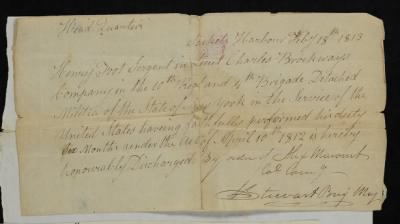 Head Quarters
Sackets Harbour Feby 18th 1813
Henry Foot Sergent in Lieut Charles Brockways
Company in the 10th Regt and 4th Brigade Detached
Militia of the State of New York in the Service of the
United States having faithfully performed his duty
Six Months under the Act of April 10th 1812 is hereby
honourably Discharged By order of
Col Comg
Stewart Brig Maj